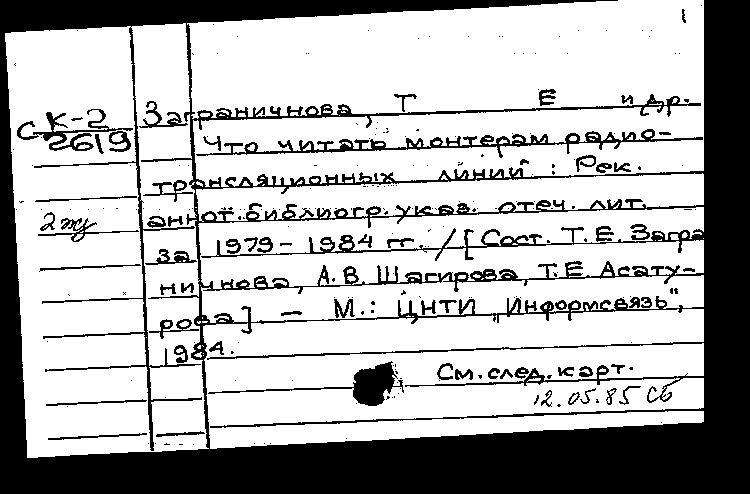 1
Заграничнова, Т Е и др.
С К-2
2619
Что читать монтерам радио-
трансляционных линий : Рек.
аннот. библиогр. указ. отеч. лит.
за 1979 - 1984 гг. / [Сост. Т.Е. Загра
ничнова, А.В. Шагирова, Т.Е. Асату-
рова]. — М.: ЦНТИ „Информсвязь",
1984.
См. след. карт.
12.05.85 СБ